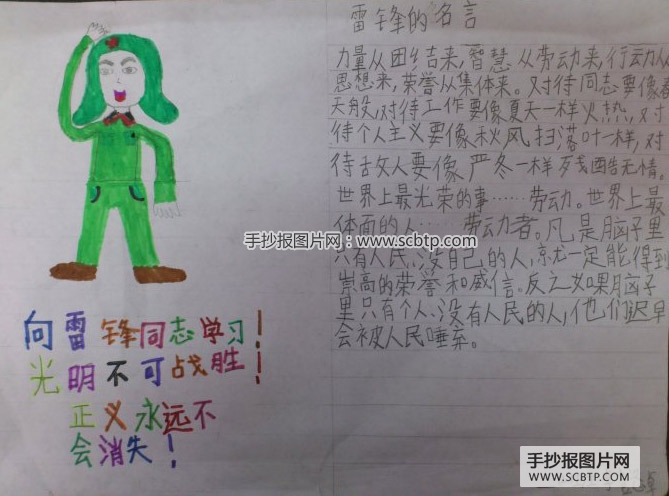 雷锋的名言
力量从团结来,智慧从劳动来,行动从
思想来,荣誉从集体来。对待同志要像春
天般,对待工作要像夏天一样火热,对
待个人主义要像秋风扫落叶一样,对
待敌人要像严冬一样残酷无情。
世界上最光荣的事……劳动。世界上最
体面的人……劳动者。凡是脑子里
只有人民、没自己的人,就一定能得到
崇高的荣誉和威信。反之如果脑子
里只有个人、没有人民的人,他们迟早
会被人民唾弃。
向雷锋同志学习!
光明不可战胜!
正义永远不
会消失!
手抄报图片网:www.scbtp.com
手抄报图片网
WWW.SCBTP.COM